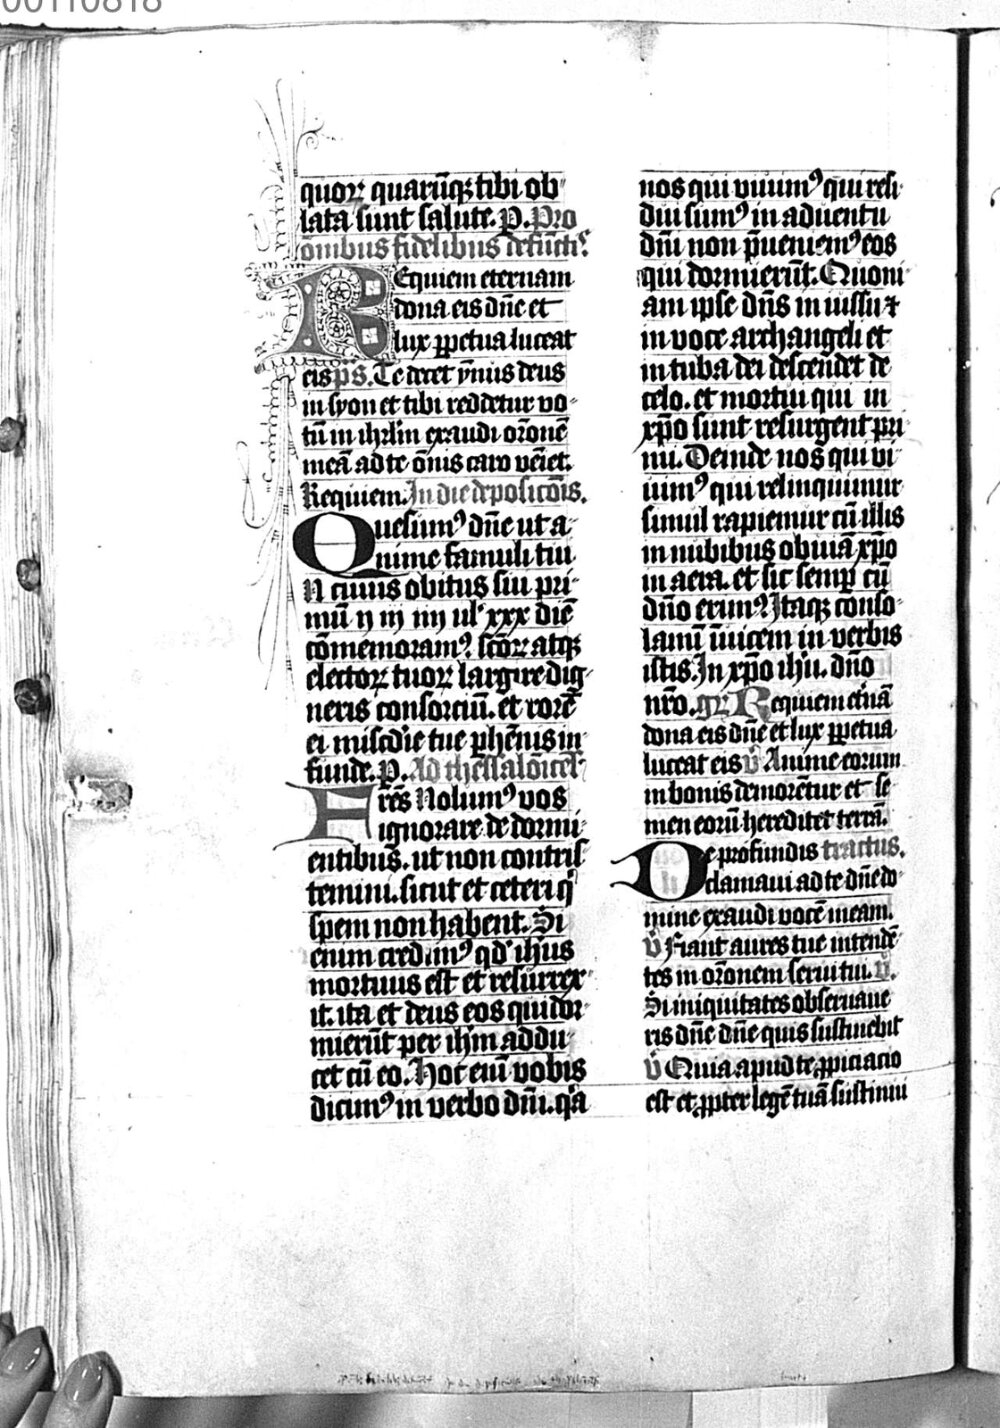 00110818
quoꝝ quarūqꝫ tibi ob
lata sunt salute. P. Pro
ōmibus fidelibus defūctis
REquiem eternam
dona eis dn̄e et
lux ꝑpetua luceat
eis p̄s. Te decet ymnus deus
in syon et tibi reddetur vo
tū in ihrl̄m exaudi or̄onē
meā ad te ōnis caro veīet.
Requiem. In die deposicōis.
Quesumꝰ dn̄e ut a
nime famuli tui
N cuius obitus siu pri
mū ij iij iiij ul' xxx diē
cōmemoramꝰ scōꝝ atqꝫ
electoꝝ tuoꝝ largire dig
neris consorciū. et rorē
ei misc̄die tue phēnis in
funde. P. Ad thessalōicēs
Fr̄es Nolumꝰ vos
ignorare de dormi
entibus. ut non contris
temini. sicut et ceteri q
spem non habent. Si
enim credimꝰ qd' ih̄us
mortuus est et resurrex
it. ita et deus eos qui dor
mierūt per ih̄m addu
cet cū eo. Hoc eni vobis
dicimꝰ in verbo dn̄i. q̄a
nos qui viuimꝰ qui resi
dui sumꝰ in aduentu
dn̄i non p̄ueniemꝰ eos
qui dormierūt. Quoni
am ipse dn̄s in iussu ⁊
in voce archangeli et
in tuba dei descendet de
celo. et mortui qui in
xp̄o sunt resurgent pri
mi. Deinde nos qui vi
uimꝰ qui relinquimur
simul rapiemur cū illis
in nubibus obuiā xp̄o
in aera. et sic semꝑ cū
dn̄o erimꝰ Itaqꝫ cōnso
lami īuicem in verbis
istis. In xp̄o ih̄u. dn̄o
nr̄o. gr̄ Requiem et̄nā
dona eis dn̄e et lux ꝑpetua
luceat eis v̄ Anime eorum
in bonis demorētur et se
men eorū hereditet terrā.
De profundis tractus.
clamaui ad te dn̄e do
mine exaudi vocē meam.
v̄ Fiant aures tue intendē
tes in or̄onem serui tui. v̄.
Si iniquitates obseruaue
ris dn̄e dn̄e quis sustinebit
v̄ Quia apud te ꝓpiciacio
est et ꝓpter legē tuā sustinui